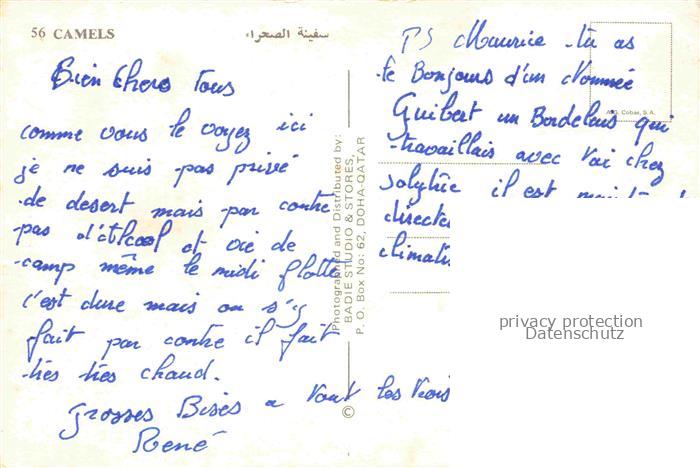 56 CAMELS
سفينة الصحراء
Bien chers Tous
comme vous le voyez ici
je ne suis pas privé
de desert mais par contre
pas d'Alcool et vie de
camp même le midi flotte
c'est dure mais on s'y
fait par contre il fait
très très chaud.
Grosses Bises a Vous les Trois
René
Photographed and Distributed by:
BADIE STUDIO & STORES,
P. O. Box No: 62, DOHA-QATAR
©
PS Maurice tu as
le Bonjours d'un Nommée
Guibert un Bordelais qui
travaillais avec Toi chez
il est
directe
climatis
A.G. Cobas, S.A.
privacy protection
Datenschutz